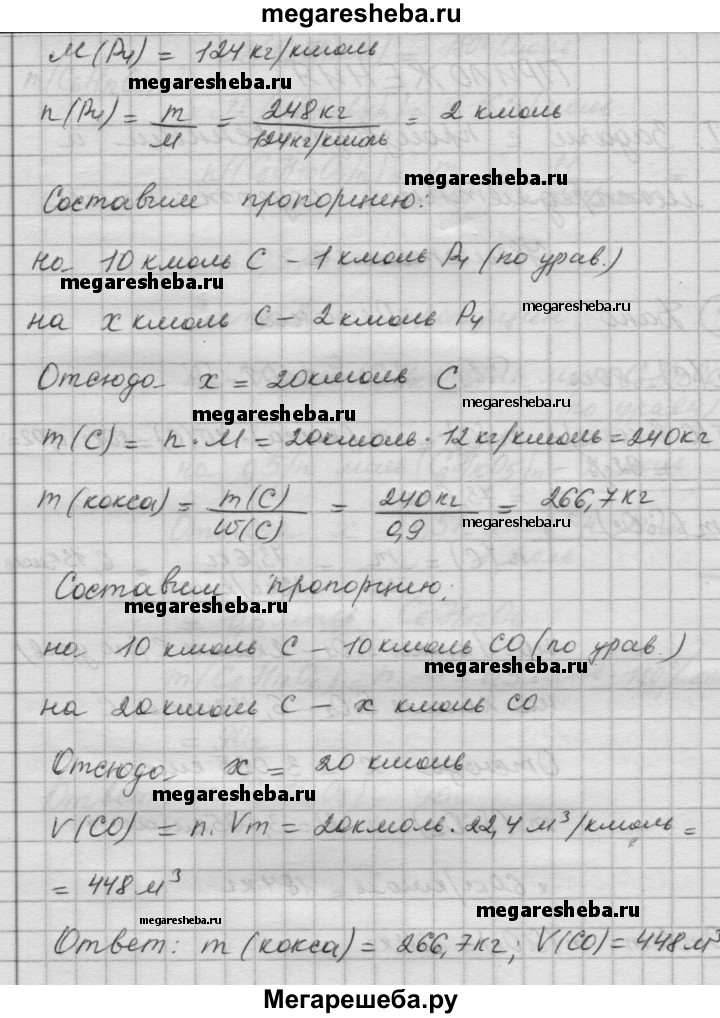 megaresheba.ru
M(P4) = 124 кг/кмоль
megaresheba.ru
n(P4) = m/M = 248 кг/124 кг/кмоль = 2 кмоль
megaresheba.ru
Составим пропорцию:
на 10 кмоль C – 1 кмоль P4 (по урав.)
megaresheba.ru
megaresheba.ru
на x кмоль C – 2 кмоль P4
Отсюда x = 20 кмоль C
megaresheba.ru
megaresheba.ru
m(C) = n · M = 20 кмоль · 12 кг/кмоль = 240 кг
m(кокса) = m(C)/w(C) = 240 кг/0,9 = 266,7 кг
megaresheba.ru
Составим пропорцию:
megaresheba.ru
на 10 кмоль C – 10 кмоль CO (по урав.)
megaresheba.ru
на 20 кмоль C – x кмоль CO
Отсюда x = 20 кмоль
megaresheba.ru
megaresheba.ru
V(CO) = n · Vm = 20 кмоль · 22,4 м³/кмоль =
= 448 м³
megaresheba.ru
megaresheba.ru
Ответ: m(кокса) = 266,7 кг; V(CO) = 448 м³
Мегарешеба.ру